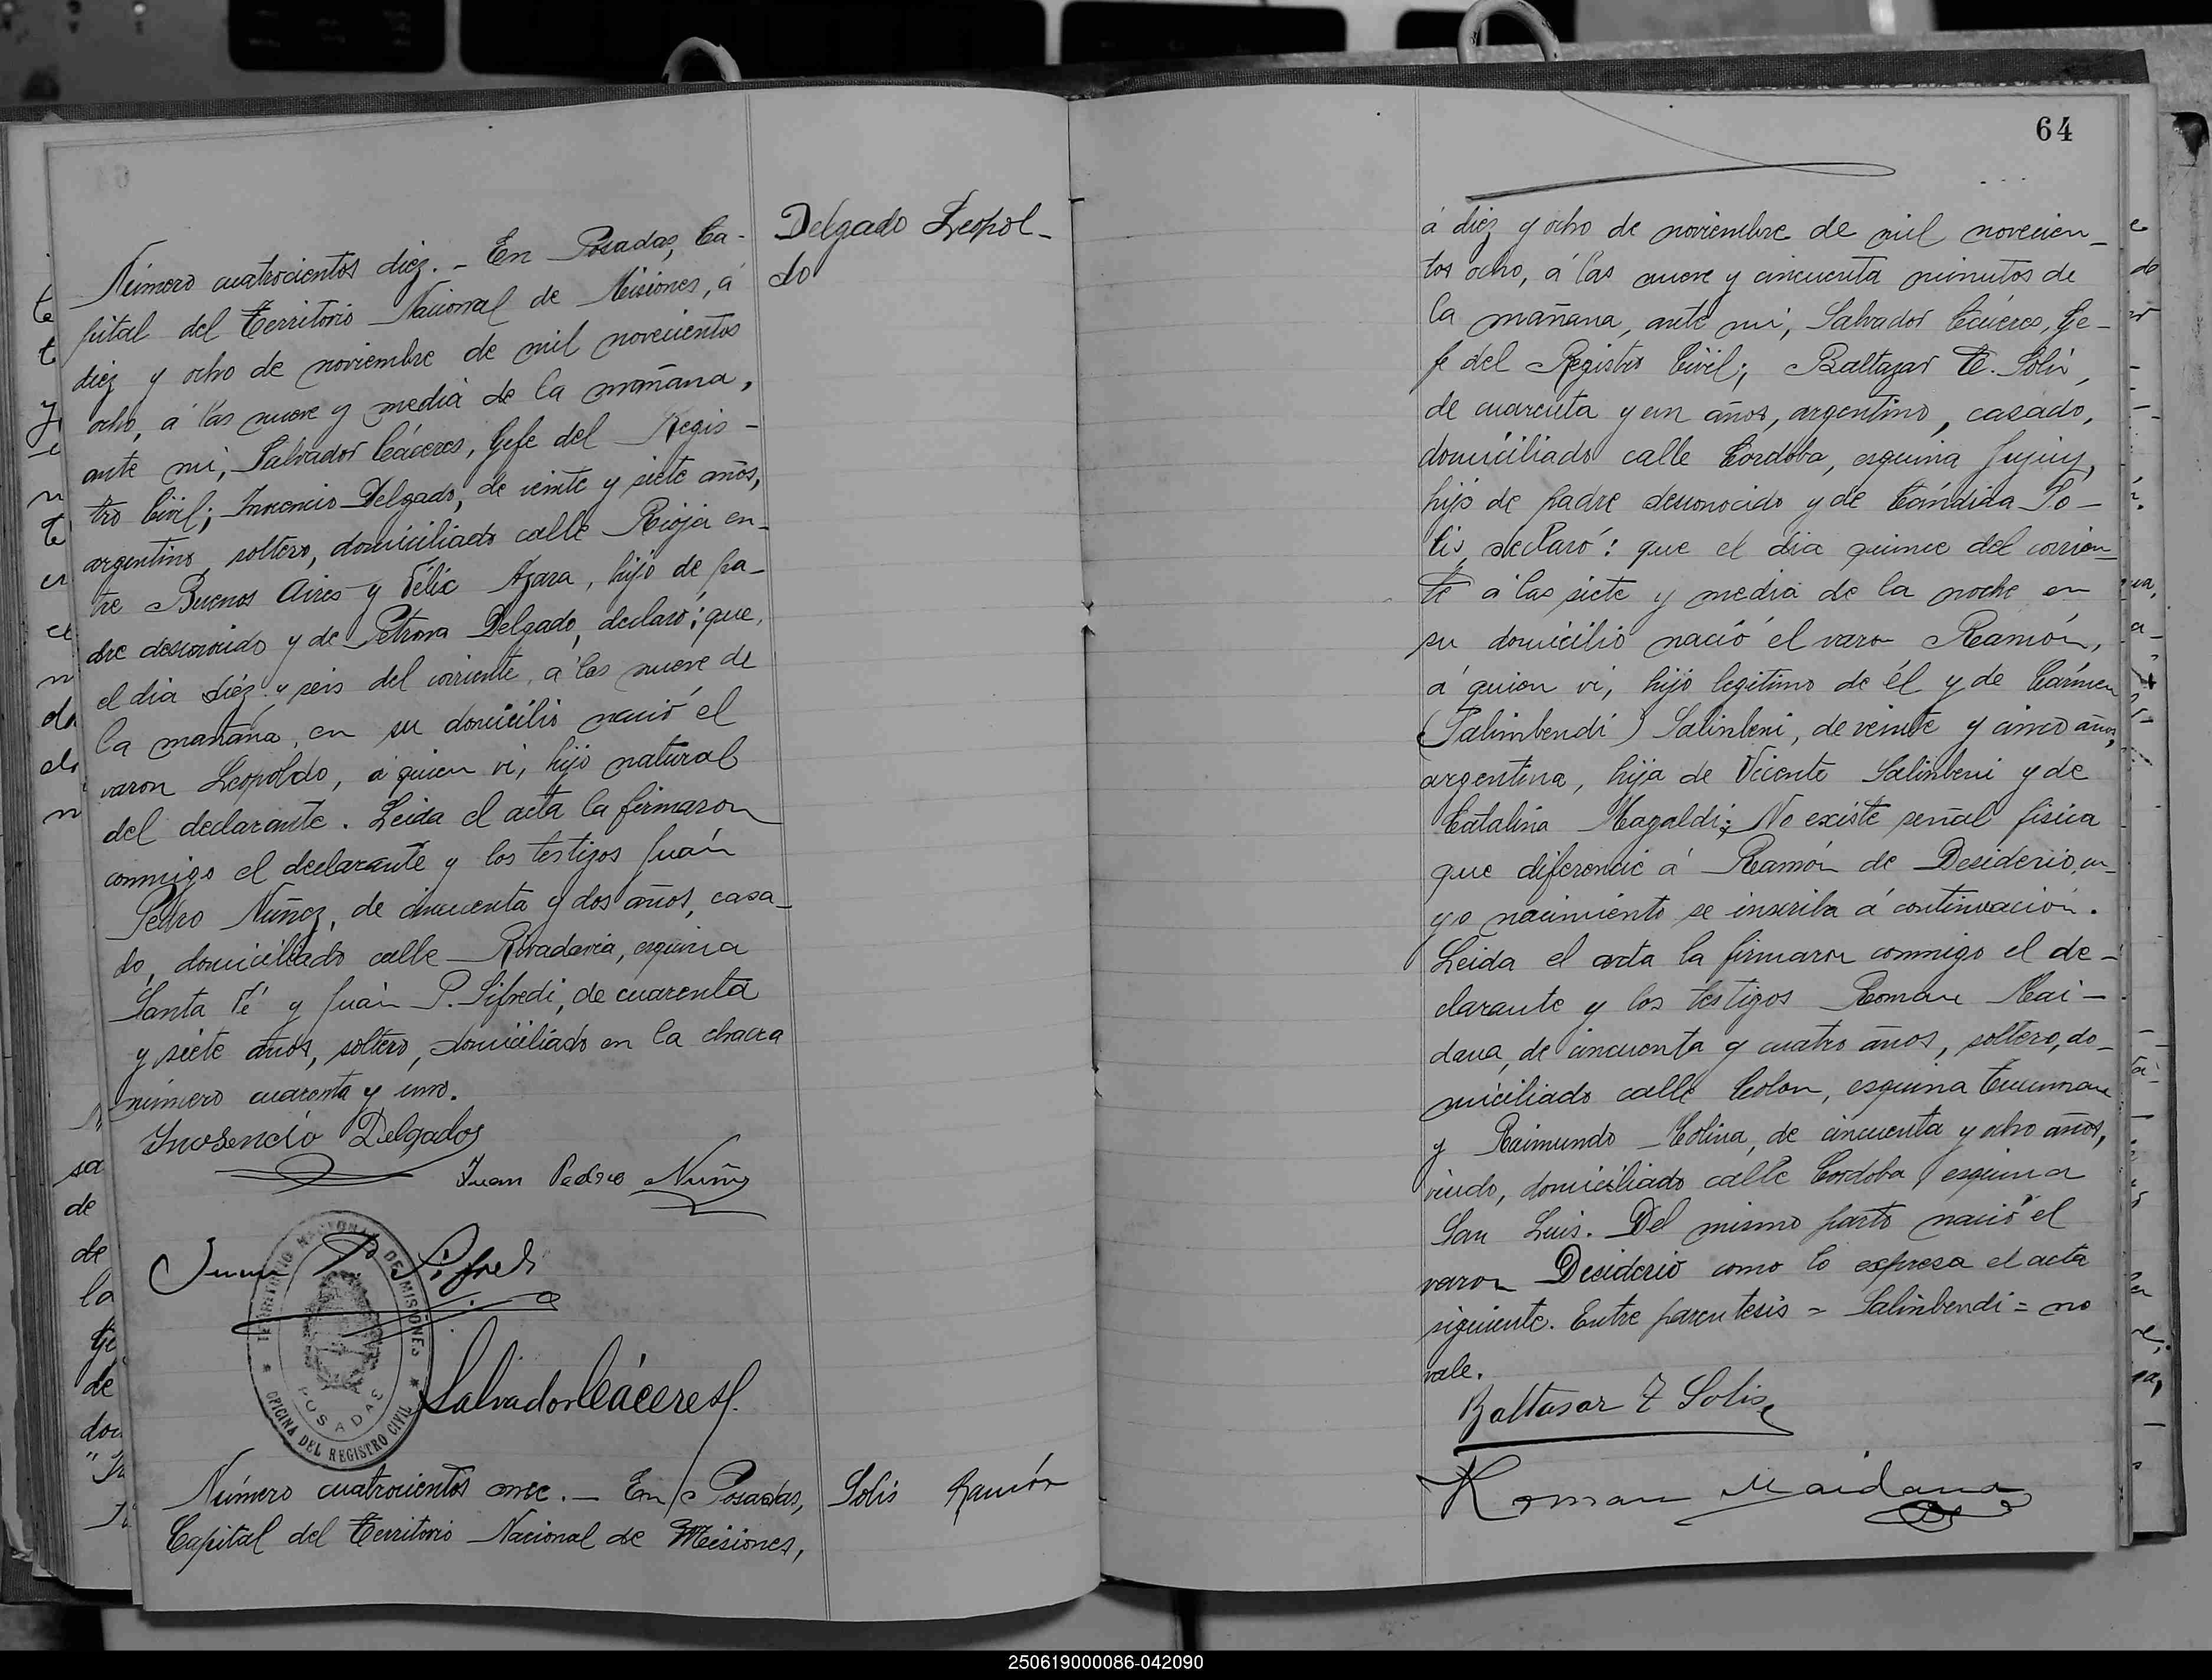 Delgado Leopol-
do
Número cuatrocientos diez. - En Posadas, Ca-
pital del Territorio Nacional de Misiones, á
diez y ocho de noviembre de mil novecientos
ocho, á las nueve y media de la mañana,
ante mi, Salvador Cáceres, Gefe del Regis-
tro Civil; Inocencio Delgado, de veinte y siete años,
argentino, soltero, domiciliado calle Rioja en-
tre Buenos Aires y Félix Azara, hijo de pa-
dre desconocido y de Petrona Delgado, declaró: que,
el dia diez y seis del corriente, á las nueve de
la mañana, en su domicilio nació el
varon Leopoldo, á quien vi, hijo natural
del declarante. Leida el acta la firmaron
conmigo el declarante y los testigos Juán
Pedro Núñez, de cincuenta y dos años, casa-
do, domiciliado calle Rivadavia, esquina
Santa Fé y Juán P. Sifredi, de cuarenta
y siete años, soltero, domiciliado en la chacra
número cuarenta y uno.
Inosencio Delgados
Juan Pedro Nuñez
Juan P. Sifredi
TERRITORIO NACIONAL DE MISIONES
POSADAS
OFICINA DEL REGISTRO CIVIL
Salvador Cáceres
Número cuatrocientos once. - En Posadas,
Capital del Territorio Nacional de Misiones,
Solis Ramón
64
á diez y ocho de noviembre de mil novecien-
tos ocho, á las nueve y cincuenta minutos de
la mañana, ante mi, Salvador Cáceres, Ge-
fe del Registro Civil; Baltazar T. Solis,
de cuarenta y un años, argentino, casado,
domiciliado calle Cordoba, esquina Jujuy,
hijo de padre desconocido y de Cándida So-
lis, declaró: que el dia quince del corrien-
te á las siete y media de la noche en
su domicilio nació el varon Ramón,
á quien vi, hijo legitimo de él y de Cármen
(Salimbendi) Salinbeni, de veinte y cinco años,
argentina, hija de Vicente Salinbeni y de
Catalina Magaldi; No existe señal fisica
que diferencie á Ramón de Desiderio, cu-
yo nacimiento se inscriba á continuación.
Leida el acta la firmaron conmigo el de-
clarante y los testigos Roman Mai-
dana, de cincuenta y cuatro años, soltero, do-
miciliado calle Colon, esquina Tucuman
y Raimundo Molina, de cincuenta y ocho años,
viudo, domiciliado calle Cordoba, esquina
San Luis. Del mismo parto nació el
varon Desiderio como lo expresa el acta
siguiente. Entre parentesis = Salinbendi = no
vale.
Baltasar T Solis
Roman Maidana
250619000086-042090